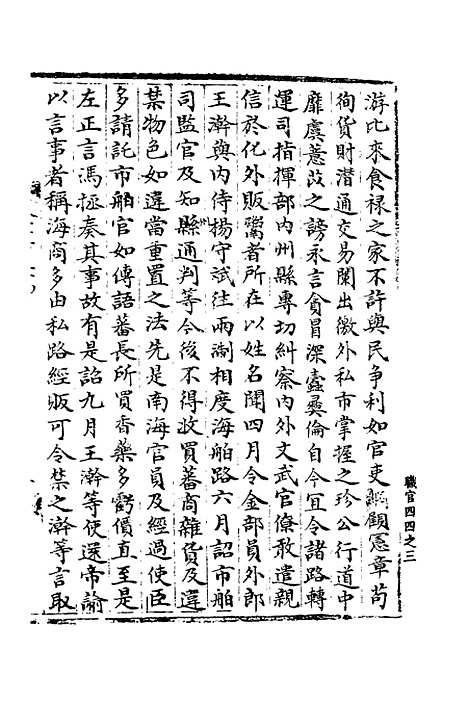 職官四四之三
游比來食禄之家不許與民爭利如官吏罔顧憲章苟
徇貨財潜通交易闌出徼外私市掌握之珍公行道中
靡虞薏苡之謗永言貪冒深蠹彝倫自今宜令諸路轉
運司指揮部内州縣專切糾察内外文武官僚敢遣親
信於化外販鬻者所在以姓名聞四月令金部員外郎
王澣與内侍楊守斌往兩浙相度海舶路六月詔市舶
司監官及知縣通判等今後不得收買蕃商雜貨及違
禁物色如違當重置之法先是南海官員及經過使臣
多請託市舶官如傳語蕃長所買香藥多虧價直至是
左正言馮拯奏其事故有是詔九月王澣等使還帝諭
以言事者稱海商多由私路經販可令禁之澣等言取